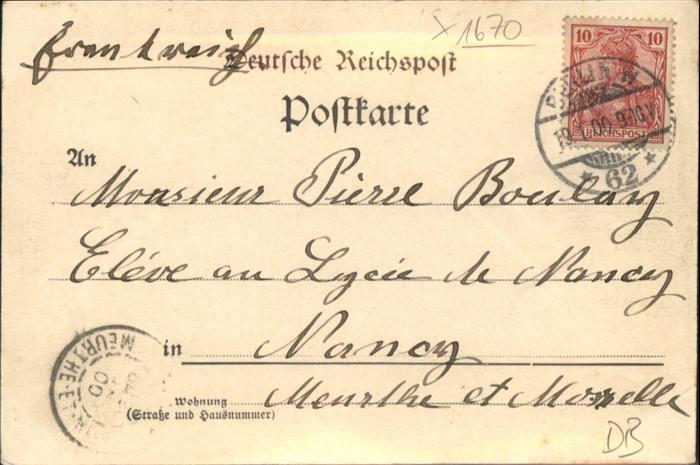 X 1670
Frankreich.
Deutsche Reichspost
Postkarte
10 10
REICHSPOST
BERLIN W.
00. 9-10V.
* 62 *
An
Monsieur Pierre Boulay
Elève au Lycée de Nancy
in Nancy
Wohnung
(Straße und Hausnummer)
Meurthe et Moselle
MEURTHE-ET-
00
DB